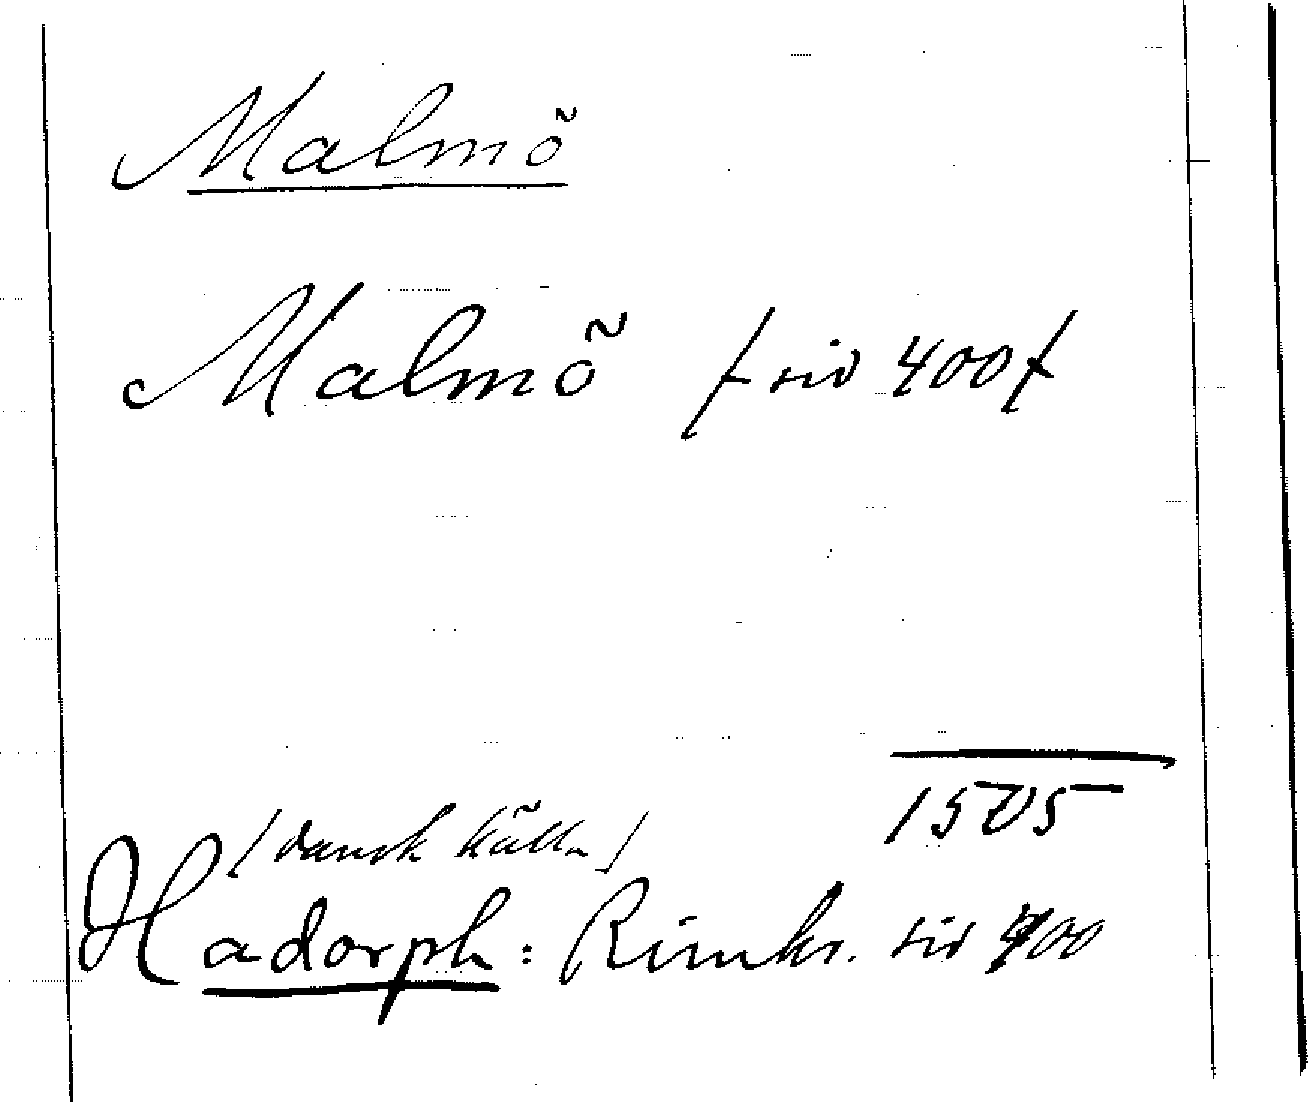 Malmö
Malmö / sid 400 /
1505
/ dansk källa /
Hadorph: Rimkr. sid 400